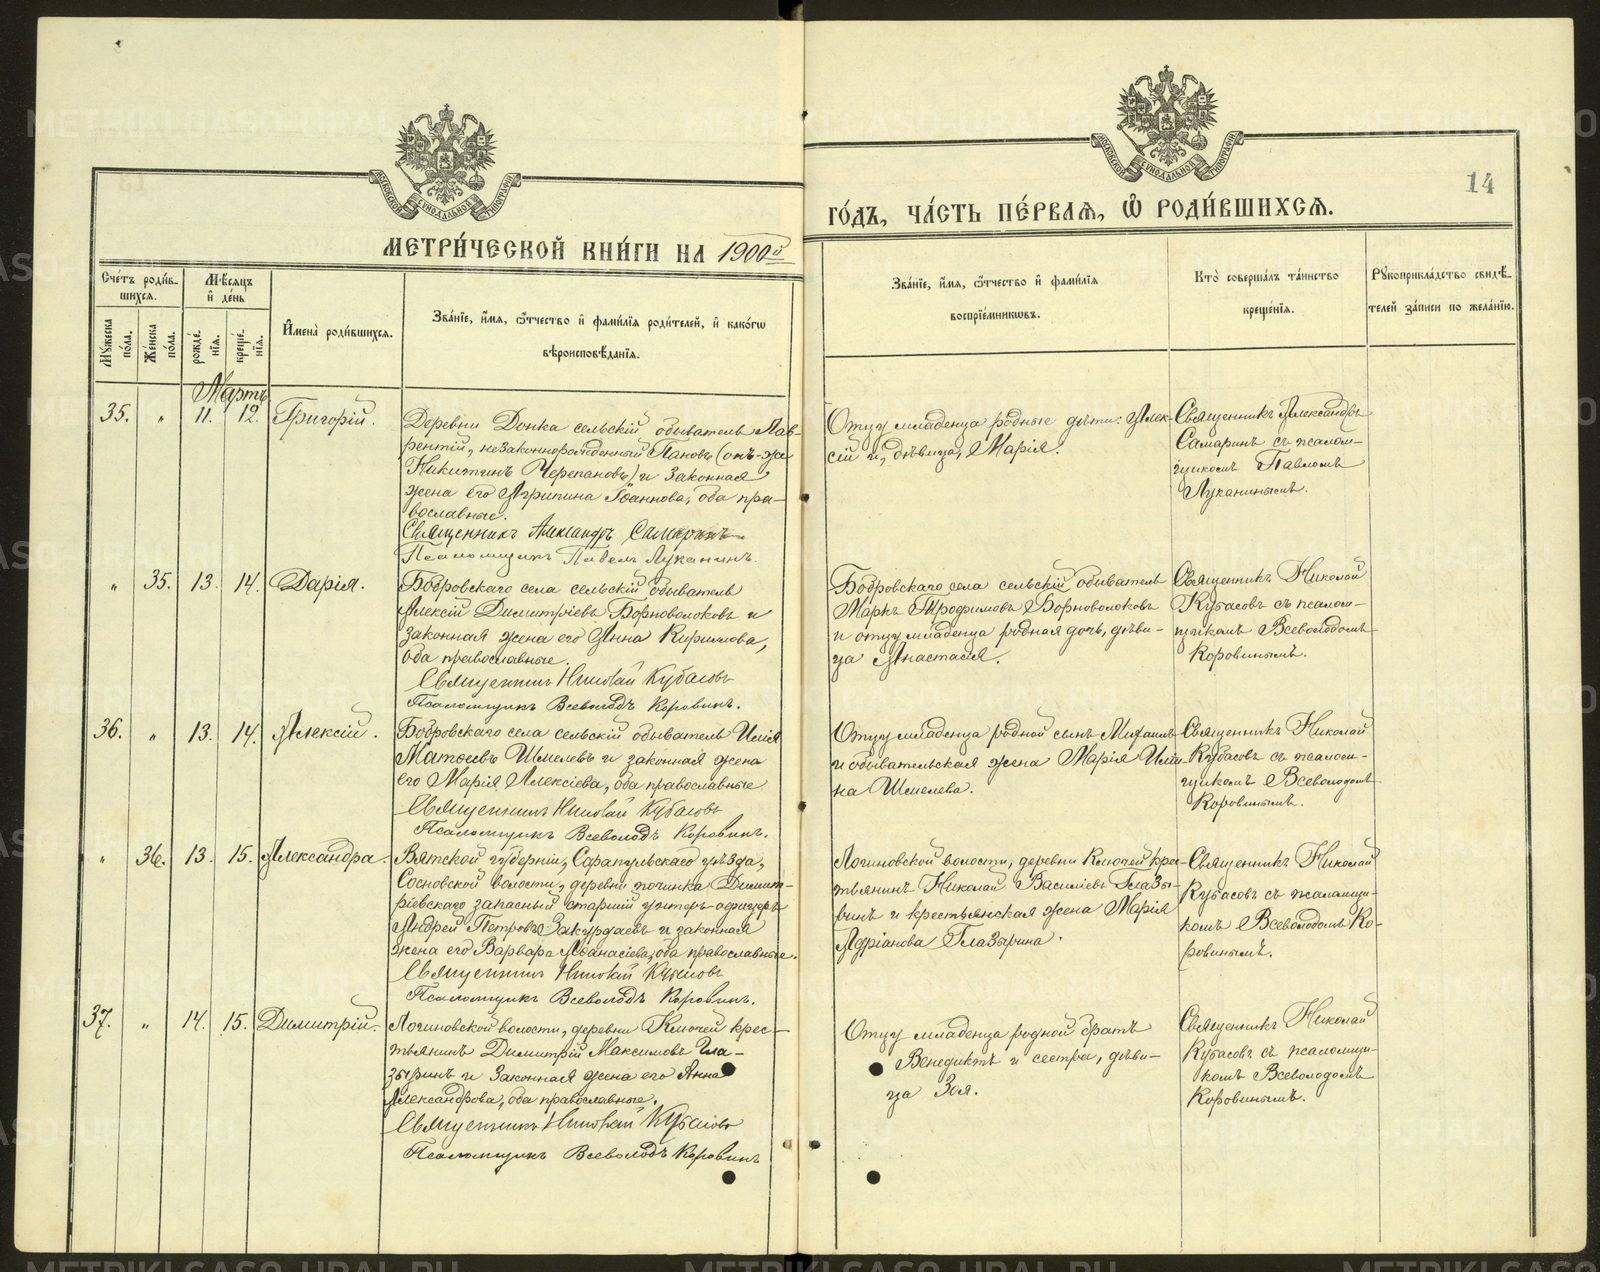 МОСКОВСКОЙ СУНОДАЛЬНОЙ ТИПОГРАФІИ
МОСКОВСКОЙ СУНОДАЛЬНОЙ ТИПОГРАФІИ
14
МЕТРИ́ЧЕСКОЙ КНИ́ГИ НА 1900й
ГО́ДЪ, ЧА́СТЬ ПЕ́РВАѦ, Ѽ РОДИ́ВШИХСѦ.
Сче́тъ роди́в-
шихсѧ.
Мꙋ́жеска по́ла.
Же́нска по́ла.
Мѣ́сѧцъ
и҆ де́нь
рожде́нїѧ.
креще́нїѧ.
И҆мена̀ роди́вшихсѧ.
Зва́нїе, и҆́мѧ, ѻ҆́тчество и҆ фами́лїѧ роди́телей, и҆ како́гѡ
вѣроисповѣ́данїѧ.
Зва́нїе, и҆́мѧ, ѻ҆́тчество и҆ фами́лїѧ
воспрїе́мникѡвъ.
Кто̀ соверша́лъ та́инство
креще́нїѧ.
Рꙋкоприкла́дство свидѣ́-
телей за́писи по жела́нїю.
Мартъ
35. " 11. 12. Григорій.
Деревни Донка сельскій обыватель Лав-
рентій, незаконнорожденный Пановъ (онъ-же
Никитинъ Черепановъ) и законная
жена его Агрипина Іоаннова, оба пра-
вославные.
Священникъ Александръ Самаринъ
Псаломщикъ Павелъ Луканинъ.
Отцу младенца родные дѣти: Алек-
сій и, дѣвица, Марія.
Священникъ Александръ
Самаринъ съ псалом-
щикомъ Павломъ
Луканинымъ.
" 35. 13. 14. Дарія.
Бобровскаго села сельскій обыватель
Алексій Димитріевъ Борноволоковъ и
законная жена его Анна Кирилова,
оба православные.
Священникъ Николай Кубасовъ
Псаломщикъ Всеволодъ Коровинъ.
Бобровскаго села сельскій обыватель
Маркъ Трофимовъ Борноволоковъ
и отцу младенца родная дочь, дѣви-
ца Анастасія.
Священникъ Николай
Кубасовъ съ псалом-
щикомъ Всеволодомъ
Коровинымъ.
36. " 13. 14. Алексій.
Бобровскаго села сельскій обыватель Илія
Матѳеевъ Шмелевъ и законная жена
его Марія Алексіева, оба православные
Священникъ Николай Кубасовъ
Псаломщикъ Всеволодъ Коровинъ.
Отцу младенца родной сынъ Михаилъ
и обывательская жена Марія Или-
на Шмелева.
Священникъ Николай
Кубасовъ съ псалом-
щикомъ Всеволодомъ
Коровинымъ.
" 36. 13. 15. Александра.
Вятской губерніи, Сарапульскаго уѣзда,
Сосновской волости, деревни починка Димит-
ріевскаго запасный старшій унтеръ-офицеръ
Андрей Петровъ Закурдаевъ и законная
жена его Варвара Аѳанасіева, оба православные.
Священникъ Николай Кубасовъ
Псаломщикъ Всеволодъ Коровинъ.
Логиновской волости, деревни Ключей крес-
тьянинъ Николай Василіевъ Глазы-
ринъ и крестьянская жена Марія
Адріанова Глазырина.
Священникъ Николай
Кубасовъ съ псаломщи-
комъ Всеволодомъ Ко-
ровинымъ.
37. " 14. 15. Димитрій.
Логиновской волости, деревни Ключей крес-
тьянинъ Димитрій Максимовъ Гла-
зыринъ и законная жена его Анна
Александрова, оба православные.
Священникъ Николай Кубасовъ
Псаломщикъ Всеволодъ Коровинъ
Отцу младенца родной братъ
Венедиктъ и сестра, дѣви-
ца Зоя.
Священникъ Николай
Кубасовъ съ псаломщи-
комъ Всеволодомъ
Коровинымъ.